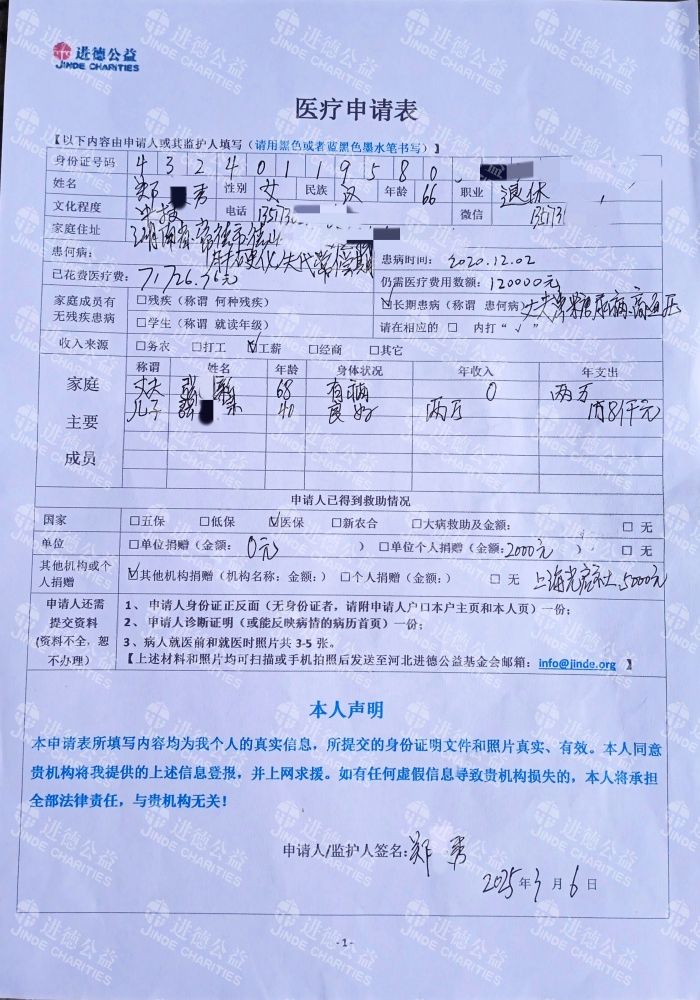 进德公益
JINDE CHARITIES
医疗申请表
【以下内容由申请人或其监护人填写(请用黑色或者蓝黑色墨水笔书写)】
身份证号码 4 3 2 4 0 1 1 9 5 8 0
姓名 郑 秀 性别 女 民族 汉 年龄 66 职业 退休
文化程度 电话 微信
家庭住址 湖南省常德市
患何病: 肝硬化失代偿期 患病时间: 2020.12.02
已花费医疗费: 71726.36元 仍需医疗费用数额: 120000元
家庭成员有无残疾患病 □残疾(称谓 何种残疾) ☑长期患病(称谓 患何病) 丈夫 糖尿病、高血压
□学生(称谓 就读年级) 请在相应的 □ 内打"√"
收入来源 □务农 □打工 ☑工薪 □经商 □其它
家庭主要成员 称谓 姓名 年龄 身体状况 年收入 年支出
丈夫 张 68 有病 0 两万
儿子 张 40 良好 两万
申请人已得到救助情况
国家 □五保 □低保 ☑医保 □新农合 □大病救助及金额: □ 无
单位 □单位捐赠(金额: 0元 ) □单位个人捐赠(金额: 2000元 ) □ 无
其他机构或个人捐赠 ☑其他机构捐赠(机构名称; 金额:) □个人捐赠(金额:) □ 无 上海光启社 5000元
申请人还需提交资料(资料不全,恕不办理)
1、 申请人身份证正反面(无身份证者,请附申请人户口本户主页和本人页)一份;
2、 申请人诊断证明(或能反映病情的病历首页)一份;
3、病人就医前和就医时照片共 3-5 张。
【上述材料和照片均可扫描或手机拍照后发送至河北进德公益基金会邮箱:info@jinde.org 】
本人声明
本申请表所填写内容均为我个人的真实信息,所提交的身份证明文件和照片真实、有效。本人同意
贵机构将我提供的上述信息登报,并上网求援。如有任何虚假信息导致贵机构损失的,本人将承担
全部法律责任,与贵机构无关!
申请人/监护人签名: 郑 秀
2025 年 3 月 6 日
- 1 -